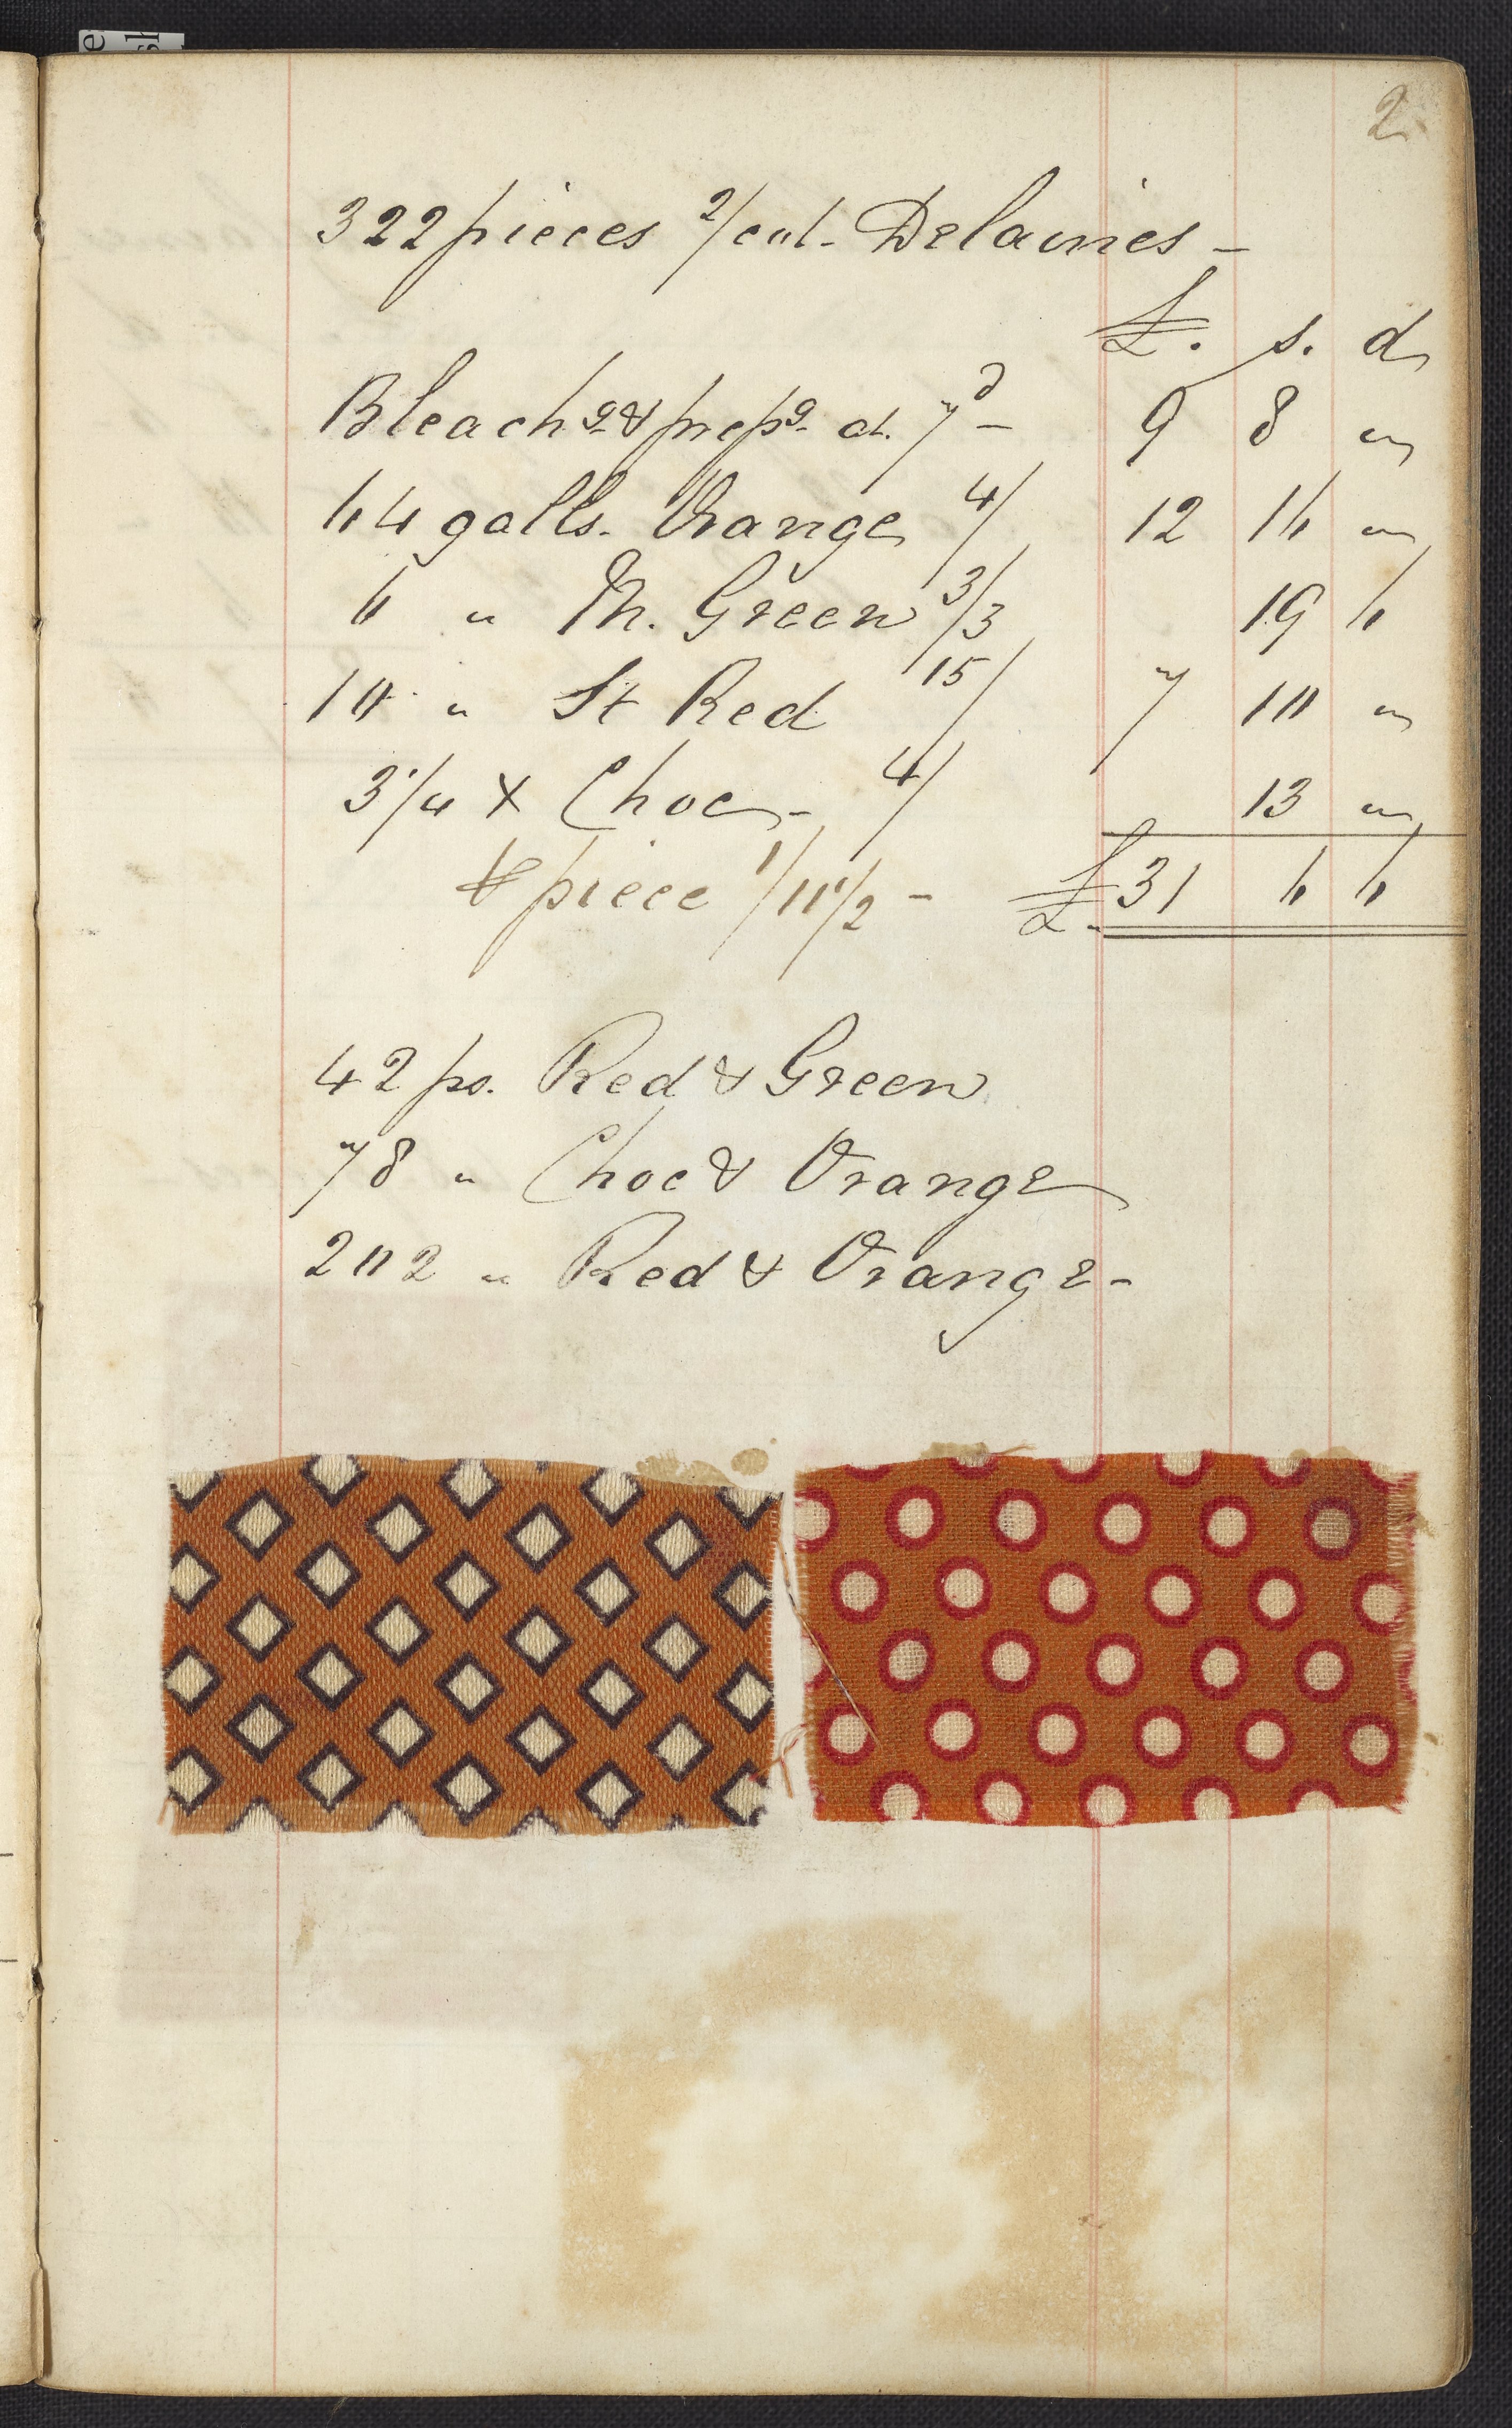 2
322 pieces 2/col. Delaines –
£. s. d
Bleachg & prepg at 7d – 9 8 "
64 galls. Orange 4/ 12 16 "
6 " M. Green 3/3 19 6
10 " St Red 15/ 7 10 "
3 1/4 X Choc – 4/ 13 "
⅌ piece 1/11 1/2 – £31 6 6
42 ps. Red & Green
78 " Choc & Orange
202 " Red & Orange –